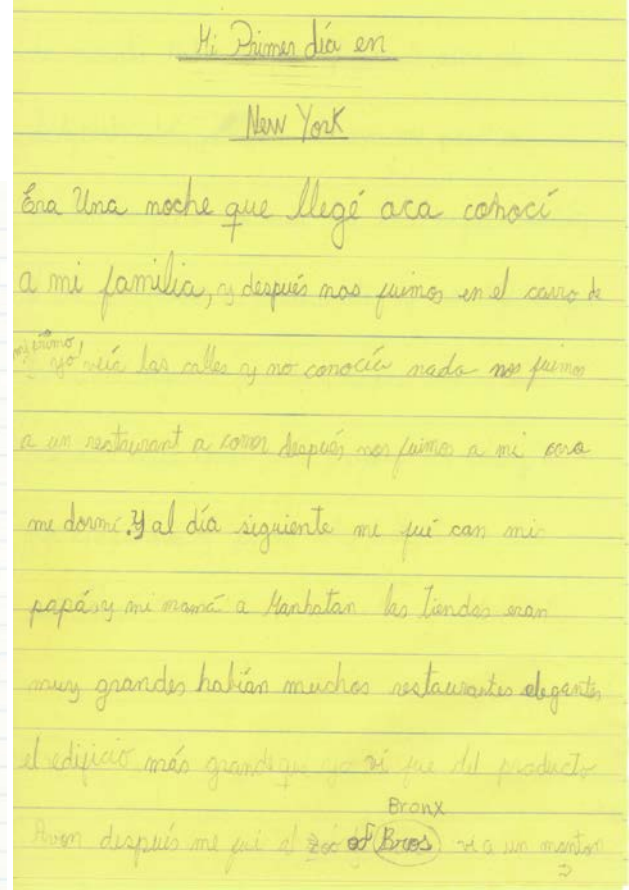 Mi Primer día en
New York
Era Una noche que llegé aca conocí
a mi familia, y después nos fuimos en el carro de
mi primo, yo veía las calles y no conocía nada nos fuimos
a un restaurant a comer después nos fuimos a mi casa
me dormí. Y al día siguiente me fué con mi
papá y mi mamá a Manhatan las tiendas eran
muy grandes habían muchos restaurantes elegantes
el edificio más grande que yo ví fue del producto
Bronx
Avon después me fui al zoo of Bros vi a un monton